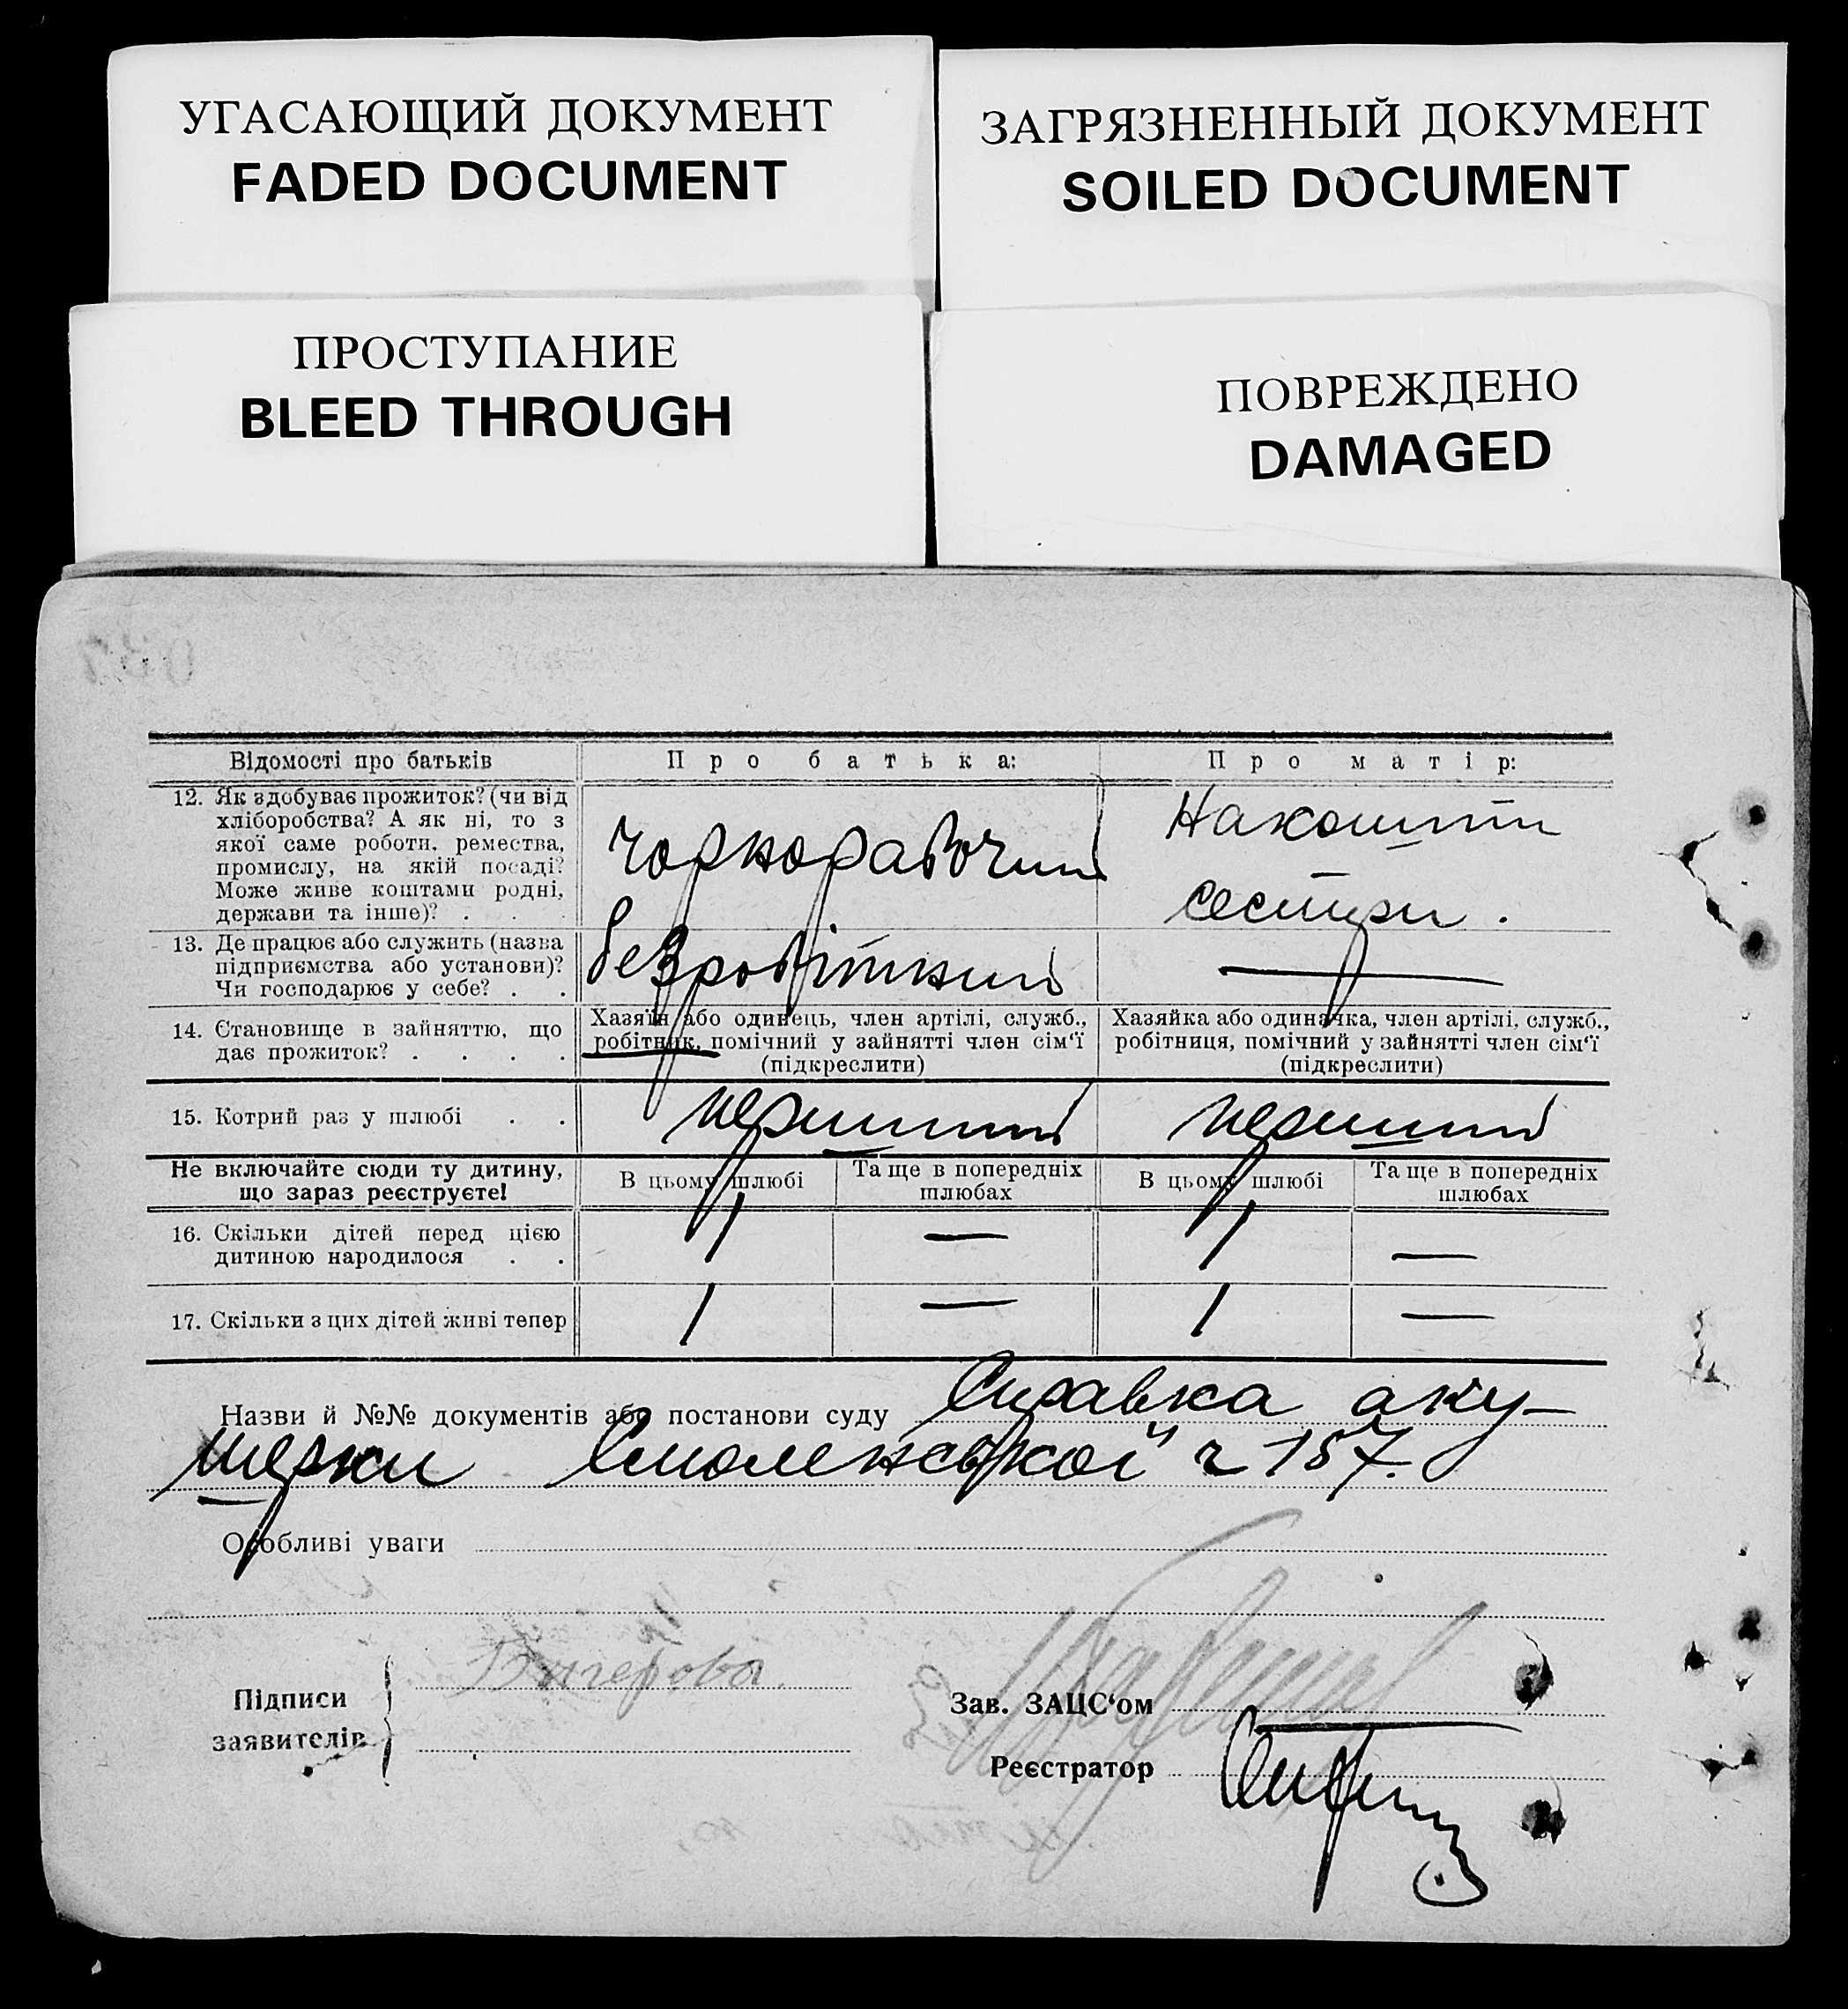 УГАСАЮЩИЙ ДОКУМЕНТ
FADED DOCUMENT
ЗАГРЯЗНЕННЫЙ ДОКУМЕНТ
SOILED DOCUMENT
ПРОСТУПАНИЕ
BLEED THROUGH
ПОВРЕЖДЕНО
DAMAGED
Відомості про батьків
Про батька:
Про матір:
12. Як здобуває прожиток? (чи від
хліборобства? А як ні, то з
якої саме роботи, ремества,
промислу, на якій посаді?
Може живе коштами родні,
держави та інше)? . . .
чорнорабочий
На кошти
сестри.
13. Де працює або служить (назва
підприємства або установи)?
Чи господарює у себе? . .
безробітний
—
14. Становище в зайняттю, що
дає прожиток? . . . .
Хазяїн або одинець, член артілі, служб.,
робітник, помічний у зайнятті член сім'ї
(підкреслити)
Хазяйка або одиначка, член артілі, служб.,
робітниця, помічний у зайнятті член сім'ї
(підкреслити)
15. Котрий раз у шлюбі . .
перший
перший
Не включайте сюди ту дитину,
що зараз реєструєте!
В цьому шлюбі
Та ще в попередніх
шлюбах
В цьому шлюбі
Та ще в попередніх
шлюбах
16. Скільки дітей перед цією
дитиною народилося . .
1 — 1 —
17. Скільки з цих дітей живі тепер
1 — 1 —
Назви й №№ документів або постанови суду Справка аку-
шерки Смоленської ч 157.
Особливі уваги
Підписи
заявителів
Зав. ЗАЦС'ом
Реєстратор